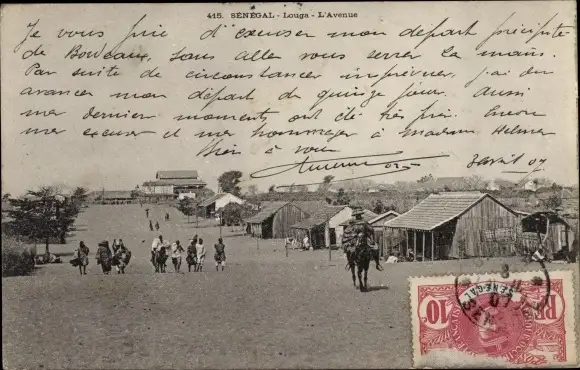 415. SÉNÉGAL - Louga - L'Avenue
Je vous prie d'excuser mon départ précipité
de Bordeaux, sans aller vous serrer la main.
Par suite de circonstances imprévues, j'ai du
avancer mon départ de quinze jours. Aussi
mes derniers moments ont été très pris. Encore
mes excuses et mes hommages à Madame
Bien à vous
3 avril 07
SÉNÉGAL
10